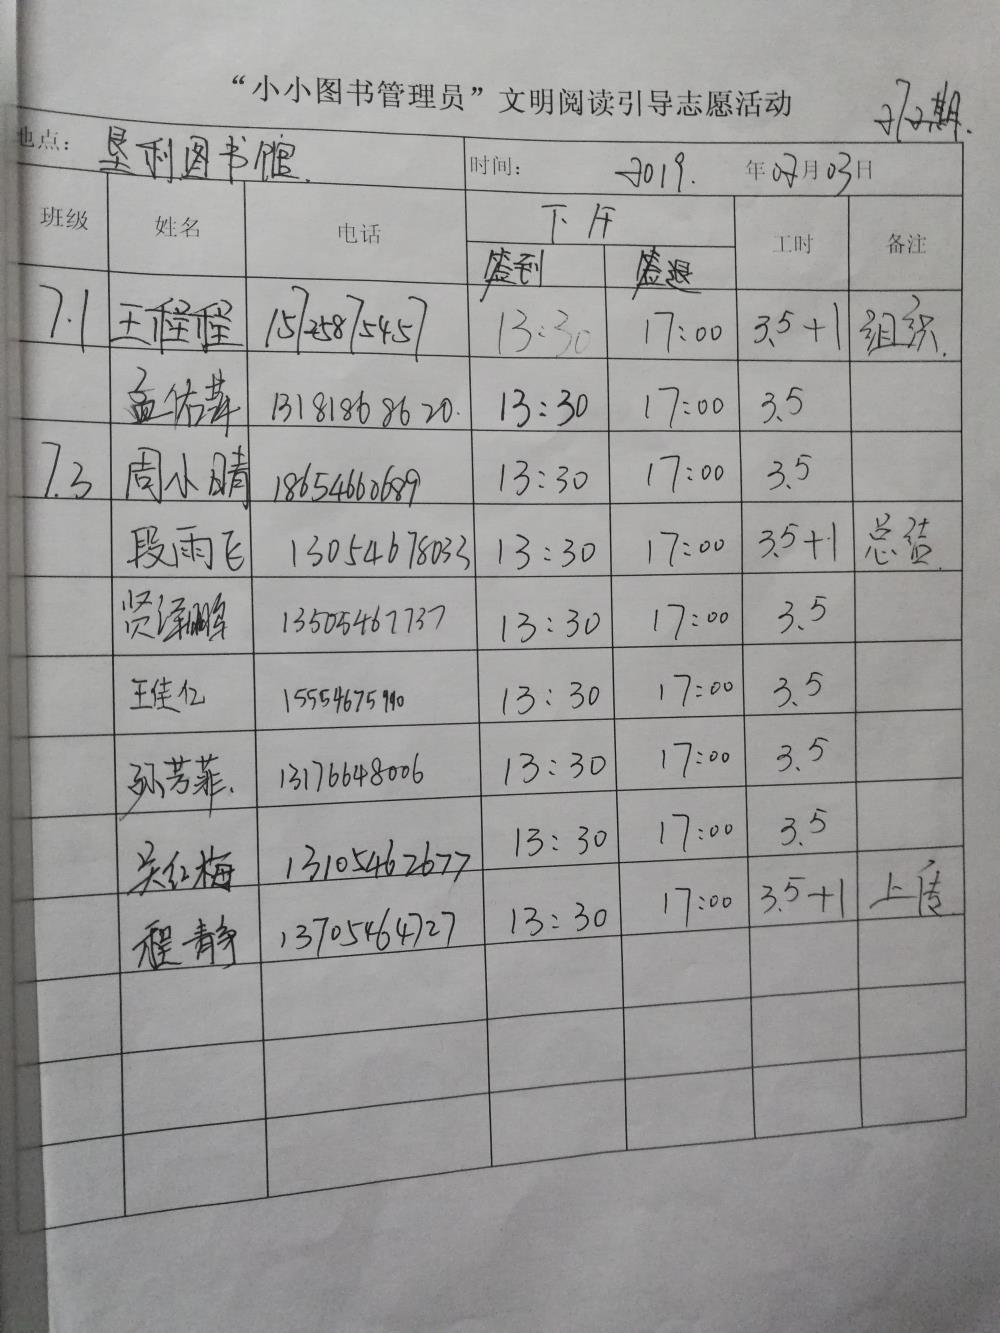 “小小图书管理员”文明阅读引导志愿活动
272期.
地点: 垦利图书馆. 时间: 2019. 年 02月 03日
班级 姓名 电话 下午 工时 备注
签到 签退
7.1 王程程 15725875457 13:30 17:00 3.5+1 组织.
13181868620. 13:30 17:00 3.5
7.3 周小晴 18654660689 13:30 17:00 3.5
段雨飞 13054678033 13:30 17:00 3.5+1 总结.
13505467737 13:30 17:00 3.5
王佳仁 13:30 17:00 3.5
孙芳菲. 13176648006 13:30 17:00 3.5
吴红梅 13105462677 13:30 17:00 3.5
程静 13705464727 13:30 17:00 3.5+1 上传.